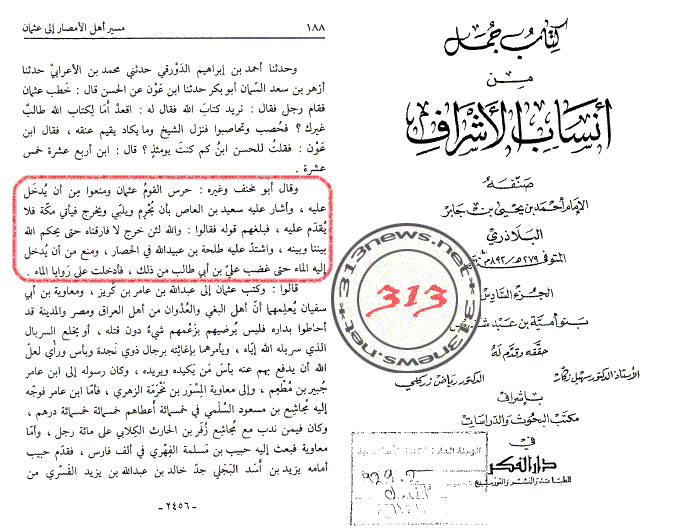 كتاب جمل
من
أنساب الأشراف
صنفه
الإمام أحمد بن يحيى بن جابر
البلاذري
المتوفى ٢٧٩هـ/٨٩٢م
الجزء السادس
بنو أمية بن عبد شمس
حققه وقدم له
الأستاذ الدكتور سهيل زكار الدكتور رياض زركلي
بإشراف
مكتب البحوث والدراسات
في
دار الفكر
للطباعة والنشر والتوزيع
313news.net
313
١٨٨ مسير أهل الأمصار إلى عثمان
وحدثنا أحمد بن إبراهيم الدَّوْرقي حدثني محمد بن الأعرابيّ حدثنا
أزهر بن سعد السَّمان أبو بكر حدثنا ابن عَوْن عن الحسن قال : خَطب عثمان
فقام رجل فقال : نريد كتابَ الله فقال له : اقعدْ أمَا لِكتاب الله طالبٌ
غيرك ؟ فحُصب وتحاصبوا فنزل الشيخ وما يكاد يقيم عنقه ، فقال ابن
عَوْن : فقلتُ للحسن ابنُ كم كنتَ يومئذٍ ؟ قال : ابن أربع عشرة خمس
عشرة .
وقال أبو مخنف وغيره : حرس القومُ عثمان ومنعوا مِن أن يُدخَل
عليه ، وأشار عليه سعيد بن العاص بأن يُحْرِم ويلبّي ويخرج فيأتي مكّة فلا
يُقدَم عليه ، فبلغهم قوله فقالوا : والله لئن خرج لا فارقناه حتى يحكم الله
بيننا وبينه ، واشتدّ عليه طلحة بن عبيدالله في الحصار ، ومنع من أن يُدخل
إليه الماء حتى غضب عليّ بن أبي طالب من ذلك ، فأدخلت عليه رَوايا الماء .
قالوا : وكتب عثمان إلى عبدالله بن عامر بن كُريز ، ومعاوية بن أبي
سفيان يُعلمهما أنّ أهل البغي والعُدْوان من أهل العراق ومصر والمدينة قد
أحاطوا بداره فليس يُرضيهم بزَعْمهم شيءٌ دون قتله ، أو يخلع السربال
الذي سربله الله إيّاه ، ويأمرهما بإغاثته برجال ذوي نَجدة وبأس ورأي لعلّ
الله أن يدفع بهم عنه بأسَ مَن يَكيده ويريده ، وكان رسوله إلى ابن عامر
جُبير بن مُطْعم ، وإلى معاوية المِسْوَر بن مَخْرَمة الزهري ، فأمّا ابن عامر فوجّه
إليه مُجاشِع بن مسعود السُلَمي في خمسمائة أعطاهم خمسمائة خمسمائة درهم ،
وكان فيمن ندب مع مُجاشع زُفَر بن الحارث الكِلابي على مائة رجل ، وأمّا
معاوية فبعث إليه حبيب بن مَسلمة الفِهْري في ألف فارس ، فقدّم حبيب
أمامه يزيد بن أَسَد البَجَلي جدّ خالد بن عبدالله بن يزيد القَسْري من
-٢٤٥٦-